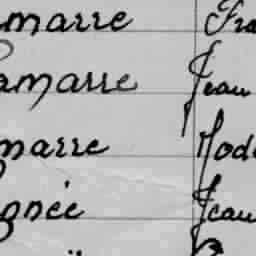 marre Fra
amarre Jean
marre Mode
gnée Jean